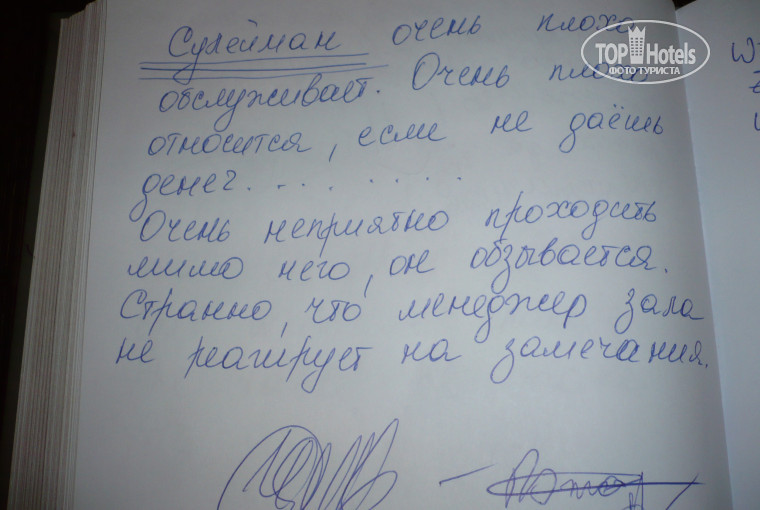 Сулейман очень плохо
обслуживает. Очень плохо
относится, если не даёшь
денег. . . . . . . . .
Очень неприятно проходить
мимо него, он обзывается.
Странно, что менеджер зала
не реагирует на замечания.
TOP Hotels
ФОТО ТУРИСТА